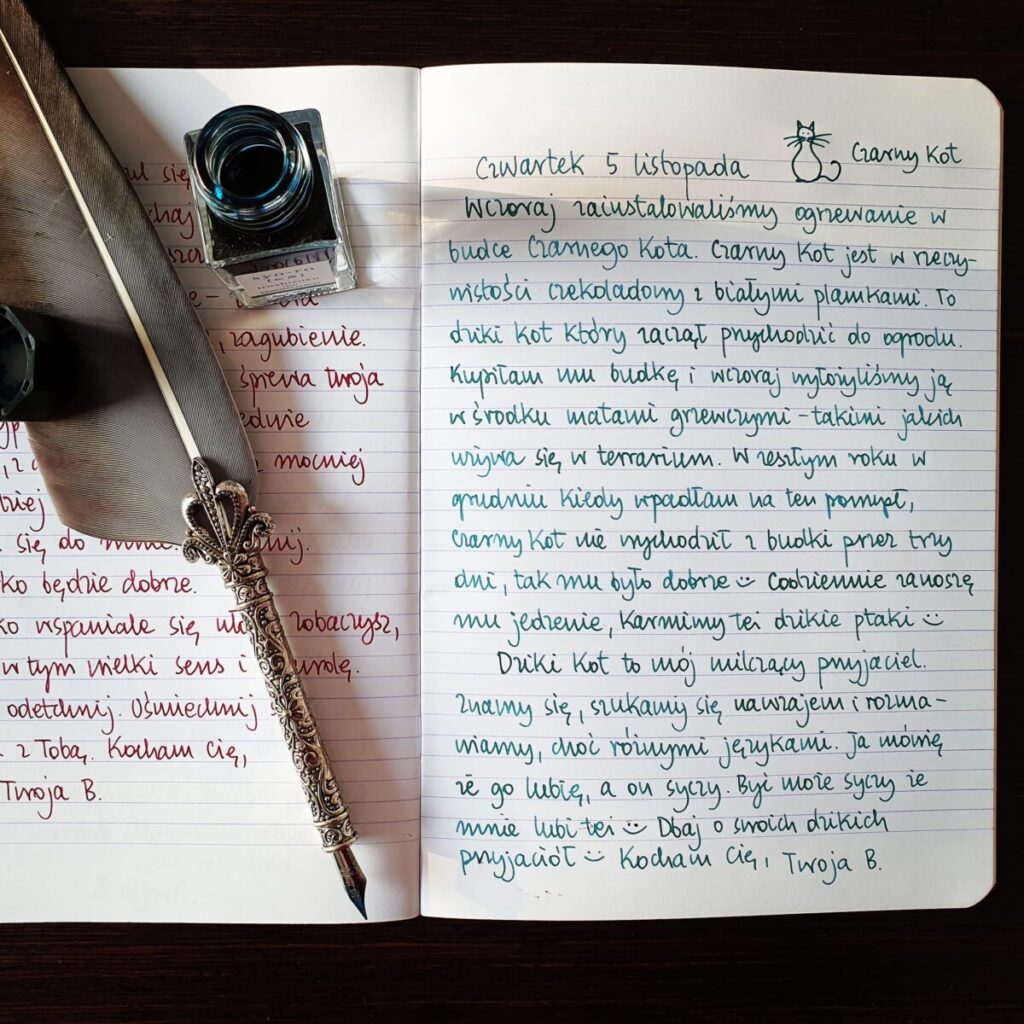 ul się
chaj
szcz
, zagubienie.
śpiewa twoja
ednie
mocniej
dziej
się do mnie.
ko będzie dobrze.
ko wspaniale się zobaczysz,
w tym wielki sens i
odetchnij. Uśmiechnij
z Tobą. Kocham Cię,
Twoja B.
syo-ro
Czarny Kot
Czwartek 5 listopada
Wczoraj zainstalowaliśmy ogrzewanie w
budce Czarnego Kota. Czarny Kot jest w rzeczy-
wistości czekoladowy z białymi plamkami. To
dziki kot który zaczął przychodzić do ogrodu.
Kupiłam mu budkę i wczoraj wyłożyliśmy ją
w środku matami grzewczymi - takimi jakich
używa się w terrarium. W zeszłym roku w
grudniu kiedy wpadłam na ten pomysł,
Czarny Kot nie wychodził z budki przez trzy
dni, tak mu było dobrze :) Codziennie zanoszę
mu jedzenie, Karmimy też dzikie ptaki :)
Dziki Kot to mój milczący przyjaciel.
Znamy się, szukamy się nawzajem i rozma-
wiamy, choć różnymi językami. Ja mówię
że go lubię, a on syczy. Być może syczy że
mnie lubi też :) Dbaj o swoich dzikich
przyjaciół :) Kocham Cię, Twoja B.